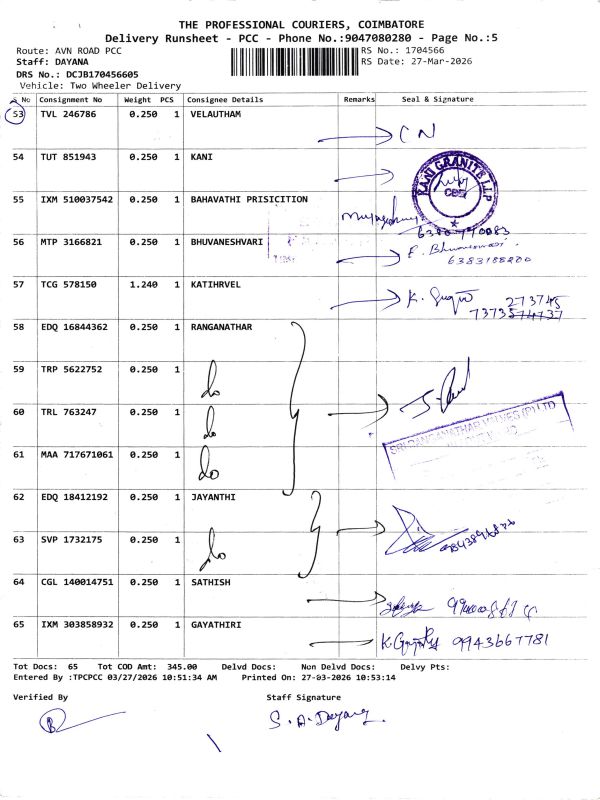 THE PROFESSIONAL COURIERS, COIMBATORE
Delivery Runsheet - PCC - Phone No.:9047080280 - Page No.:5
Route: AVN ROAD PCC
RS No.: 1704566
Staff: DAYANA
RS Date: 27-Mar-2026
DRS No.: DCJB170456605
Vehicle: Two Wheeler Delivery
S No Consignment No Weight PCS Consignee Details Remarks Seal & Signature
53 TVL 246786 0.250 1 VELAUTHAM
CN
54 TUT 851943 0.250 1 KANI
RANI GRANITE LLP
CBE
55 IXM 510037542 0.250 1 BAHAVATHI PRISICITION
56 MTP 3166821 0.250 1 BHUVANESHVARI
6383188200
57 TCG 578150 1.240 1 KATIHRVEL
K.
273745
58 EDQ 16844362 0.250 1 RANGANATHAR
59 TRP 5622752 0.250 1
do
60 TRL 763247 0.250 1
do
SRI RANGANATHAR VALVES (P) LTD
61 MAA 717671061 0.250 1
do
62 EDQ 18412192 0.250 1 JAYANTHI
63 SVP 1732175 0.250 1
do
64 CGL 140014751 0.250 1 SATHISH
65 IXM 303858932 0.250 1 GAYATHIRI
9943667781
Tot Docs: 65 Tot COD Amt: 345.00 Delvd Docs: Non Delvd Docs: Delvy Pts:
Entered By :TPCPCC 03/27/2026 10:51:34 AM Printed On: 27-03-2026 10:53:14
Verified By Staff Signature
S. A. Dayana.